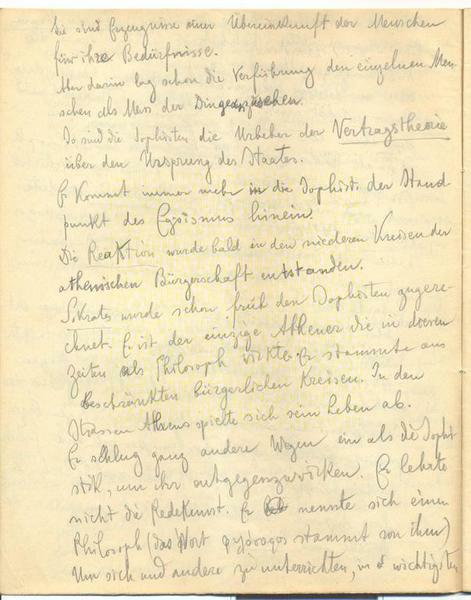 Sie sind Erzeugnisse einer Übereinkunft der Menschen
für ihre Bedürfnisse.
Aber darin lag schon die Verführung den einzelnen Men-
schen als Mass der Dinge
So sind die Sophisten die Urheber der Vertragstheorie
über den Ursprung des Staates.
Es kommt immer mehr in die Sophist. der Stand-
punkt des Egoismus hinein.
Die Reaktion wurde bald in den niederen Kreisen der
athenischen Bürgerschaft entstanden.
Sokrates wurde schon früh den Sophisten zugere-
chnet. Er ist der einzige Athener die in diesen
Zeiten als Philosoph wirkte. Er stammte aus
beschränkten bürgerlichen Kreisen. In den
Strassen Athens spielte sich sein Leben ab.
Er schlug ganz andere Wegen ein als die Sophi
stik, um ihr entgegenzuwirken. Er lehrte
nicht die Redekunst. Er nennte sich einen
Philosoph (das Wort stammt von ihm)
Um sich und andere zu unterrichten, in wichtigsten